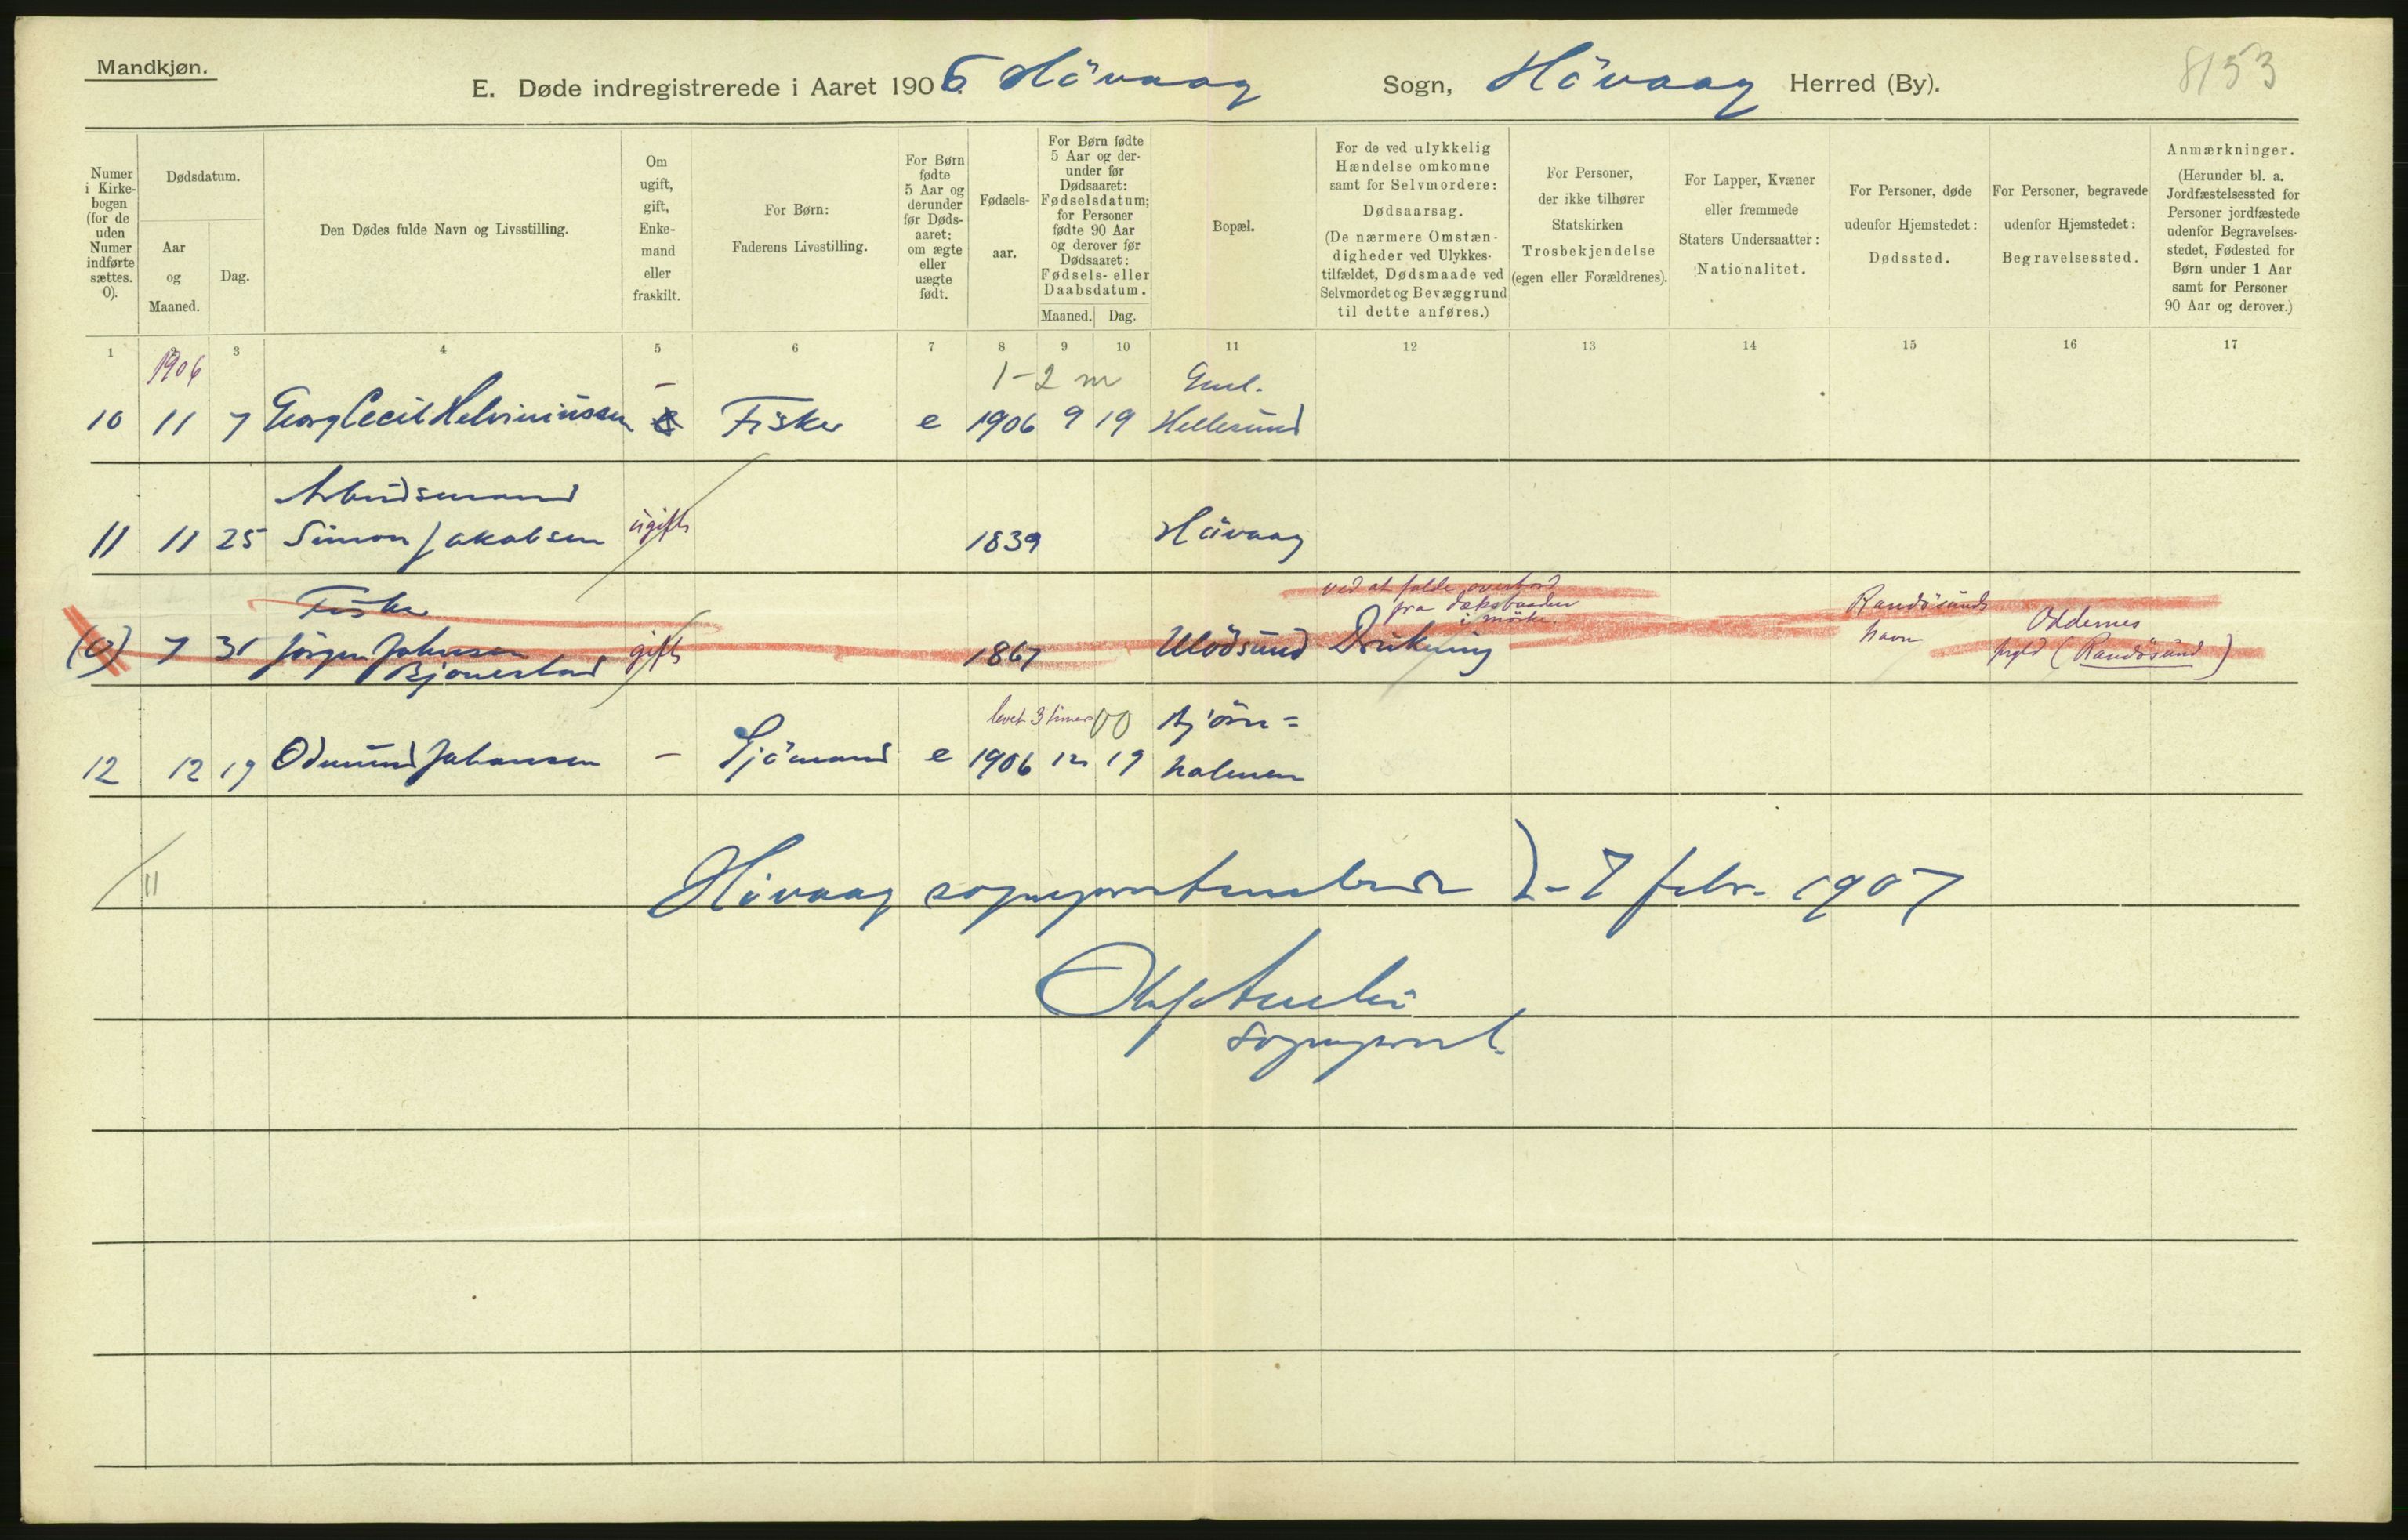 Mandkjøn.
E. Døde indregistrerede i Aaret 1906. Hövaag Sogn, Hövaag Herred (By).
8153
Numer i Kirke-bogen (for de uden Numer indførte sættes. 0).
Dødsdatum.
Aar og Maaned.
Dag.
Den Dødes fulde Navn og Livsstilling.
Om ugift, gift, Enke-mand eller fraskilt.
For Børn: Faderens Livsstilling.
For Børn fødte 5 Aar og derunder før Døds-aaret: om ægte eller uægte født.
Fødsels-aar.
For Børn fødte 5 Aar og der-under før Dødsaaret: Fødselsdatum; for Personer fødte 90 Aar og derover før Dødsaaret: Fødsels- eller Daabsdatum.
Maaned. Dag.
Bopæl.
For de ved ulykkelig Hændelse omkomne samt for Selvmordere: Dødsaarsag. (De nærmere Omstæn-digheder ved Ulykkes-tilfældet, Dødsmaade ved Selvmordet og Bevæggrund til dette anføres.)
For Personer, der ikke tilhører Statskirken Trosbekjendelse (egen eller Forældrenes).
For Lapper, Kvæner eller fremmede Staters Undersaatter: Nationalitet.
For Personer, døde udenfor Hjemstedet: Dødssted.
For Personer, begravede udenfor Hjemstedet: Begravelsessted.
Anmærkninger. (Herunder bl. a. Jordfæstelsessted for Personer jordfæstede udenfor Begravelses-stedet, Fødested for Børn under 1 Aar samt for Personer 90 Aar og derover.)
1 3 4 5 6 7 8 9 10 11 12 13 14 15 16 17
1906
1-2 m
10 11 7 Georg Cecil Helviniussen Fisker e 1906 9 19 Hellesund
Arbeidsmand
11 11 25 Simon Jakobsen ugift 1839 Hövaag
Fisker ved at falde overbord
fra dæksbaaden Randösunds
i mörke. Oddernes
(0) 7 31 Jörgen Johnsen gift 1867 Ulösund Drukning havn (Randösund)
Bjonestad
levet 3 timer Bjørn=
12 12 19 Odmund Johansen - Sjömand e 1906 12 19 holmen
11
Hövaag sogneprestembede 2-7 febr. 1907
Olaf
sogneprest.